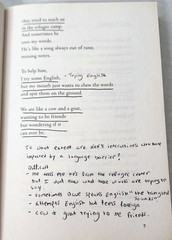 they tried to teach us
in the refugee camp.
And sometimes he
says my words.
He's like a song always out of tune,
missing notes.
To help him,
I try some English - Trying English
but my mouth just wants to chew the words
and spit them on the ground.
We are like a cow and a goat,
wanting to be friends
but wondering if it
can ever be.
So what extent are Kek's interactions with Dave
impacted by a language barrier?
Difficult
but I don't know what those words are trying to
say
- sometimes Dave speaks English
- Attempts English but feels foreign
- Cow & goat trying to be friends.
7